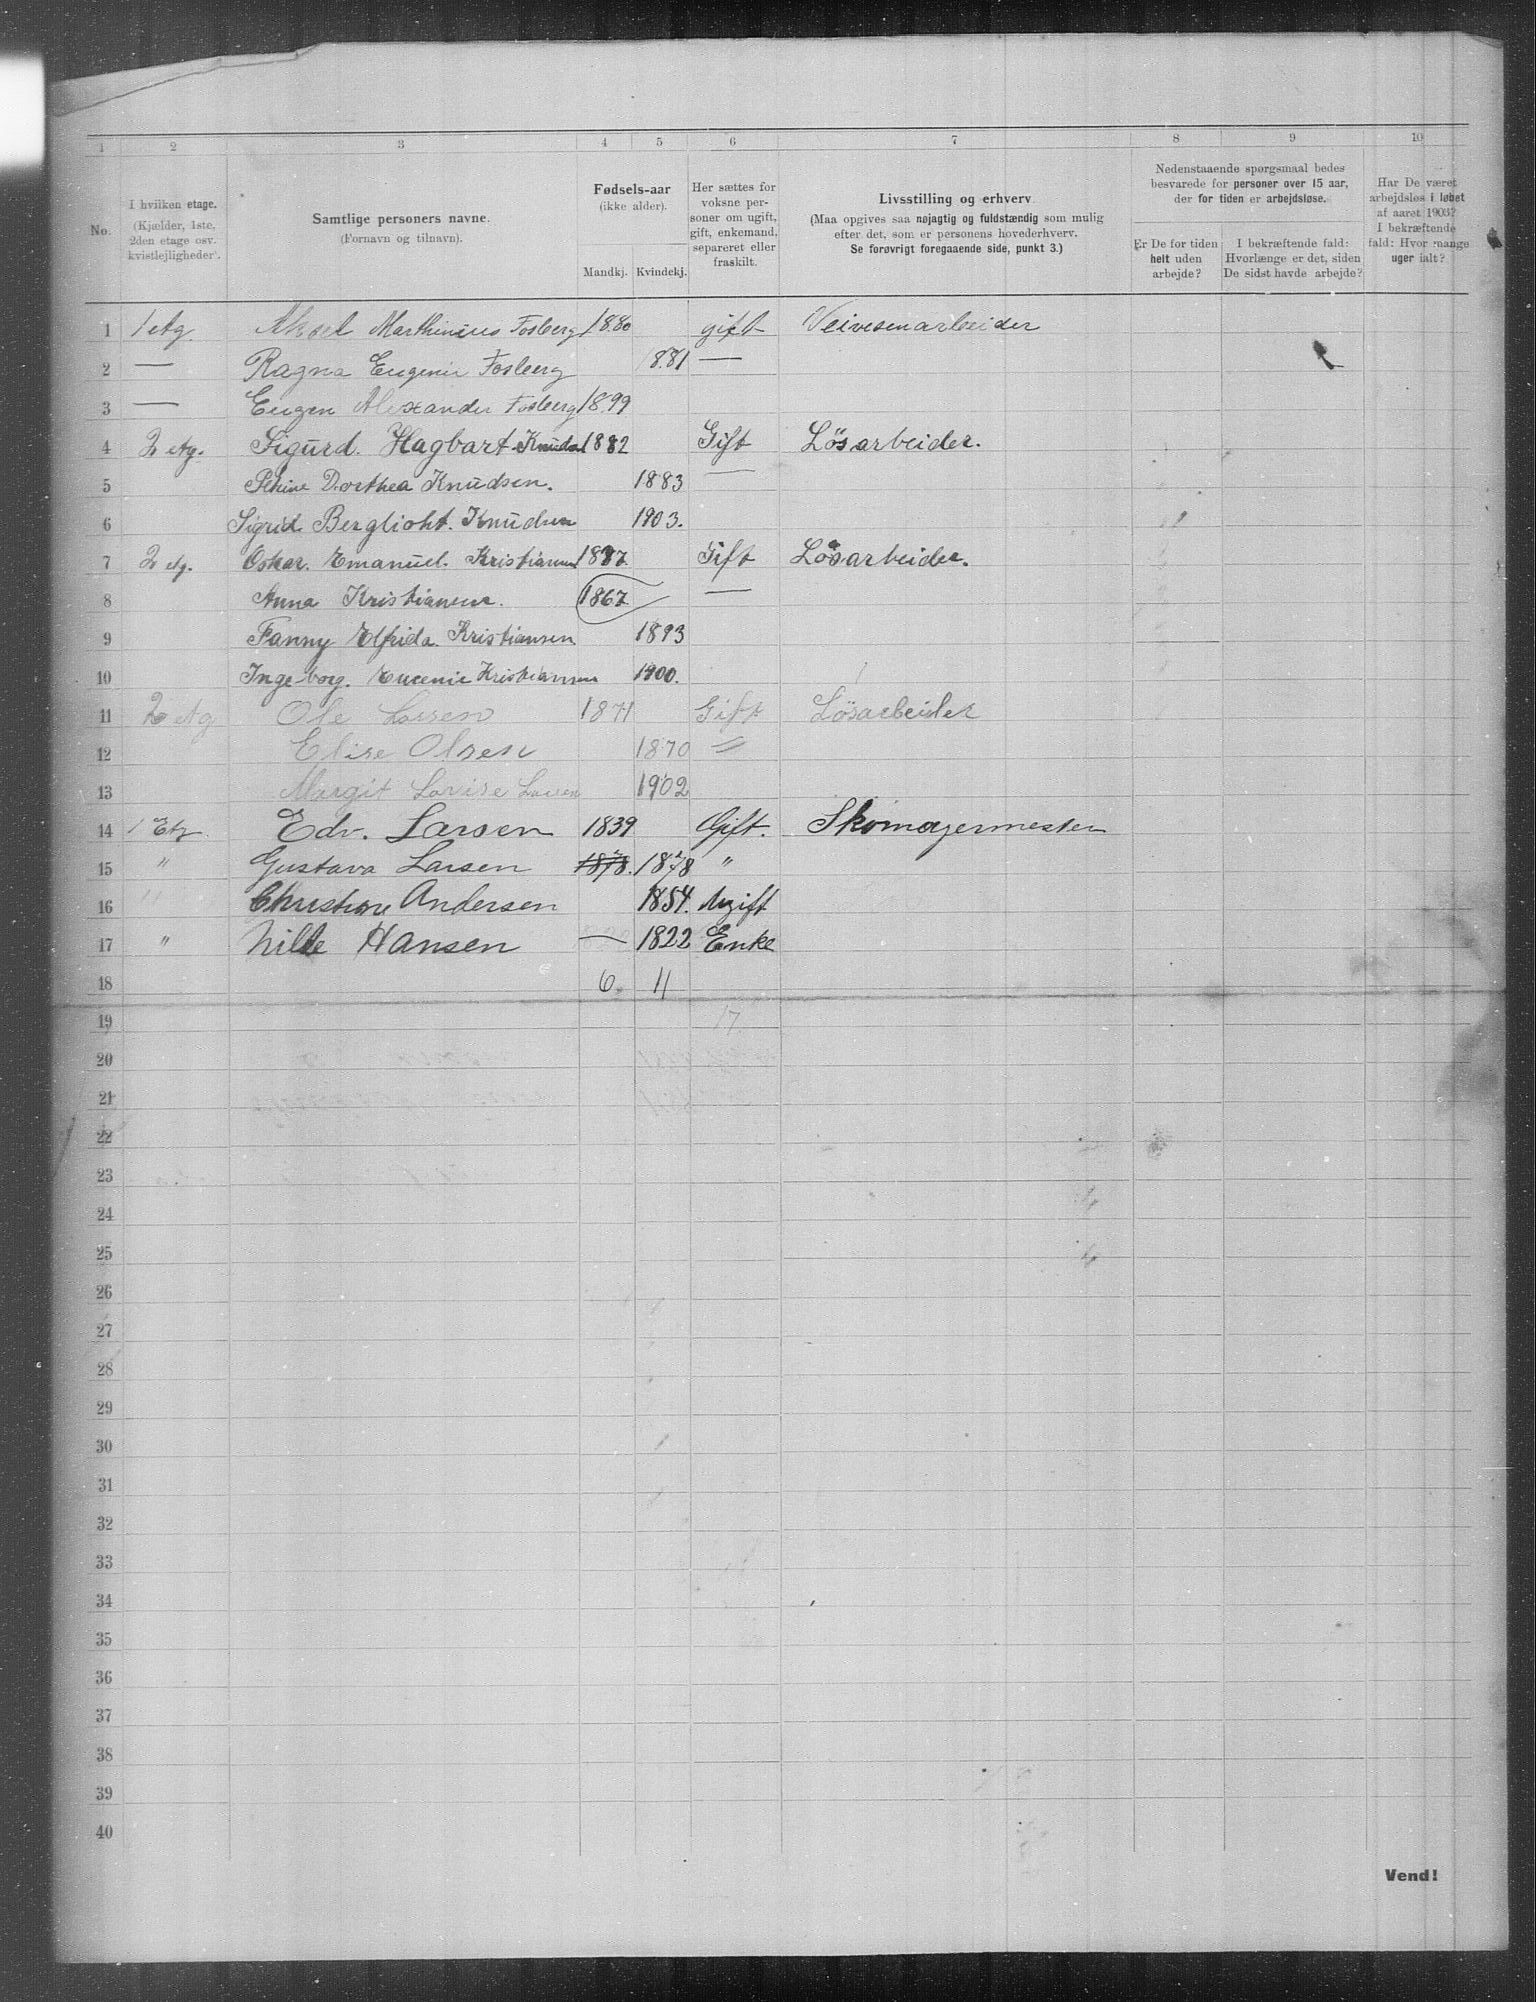 1 2 3 4 5 6 7 8 9 10
No.
I hvilken etage.
(Kjælder, 1ste, 2den etage osv. kvistlejligheder).
Samtlige personers navne.
(Fornavn og tilnavn).
Fødsels-aar
(ikke alder).
Mandkj. Kvindekj.
Her sættes for voksne personer om ugift, gift, enkemand, separeret eller fraskilt.
Livsstilling og erhverv.
(Maa opgives saa nøjagtig og fuldstændig som mulig
efter det, som er personens hovederhverv.
Se forøvrigt foregaaende side, punkt 3.)
Nedenstaaende spørgsmaal bedes
besvarede for personer over 15 aar,
der for tiden er arbejdsløse.
Er De for tiden
helt uden
arbejde?
I bekræftende fald:
Hvorlænge er det, siden
De sidst havde arbejde?
Har De været
arbejdsløs i løbet
af aaret 1903?
I bekræftende
fald: Hvor mange
uger ialt?
1 1 etg. Aksel Marthinius Fosberg 1880 gift Veivesenarbeider
2 — Ragna Eugenie Fosberg 1881 —
3 — Eugen Alexander Fosberg 1899
4 2 etg. Sigurd. Hagbart Knudsen 1882 Gift Lösarbeider.
5 Dorthea Knudsen. 1883 —
6 Sigrid Berglioht. Knudsen 1903.
7 2 etg. Oskar. Emanuel. Kristiansen 1877 Gift Lösarbeider.
8 Anna Kristiansen. 1867 —
9 Fanny Elfrida. Kristiansen 1893
10 Ingeborg. Eugenie Kristiansen 1900.
11 2 etg Ole Larsen 1871 Gift Lösarbeider
12 Elise Olsen 1870 "
13 Margit Lovise Larsen 1902
14 1 Etg. Edv. Larsen 1839 Gift. Skomagermester
15 " Gustava Larsen 1878. 1878 "
16 " Christine Andersen 1854. Ugift
17 " Nille Hansen — 1822 Enke
18 6. 11
19 17
20
21
22
23
24
25
26
27
28
29
30
31
32
33
34
35
36
37
38
39
40
Vend!